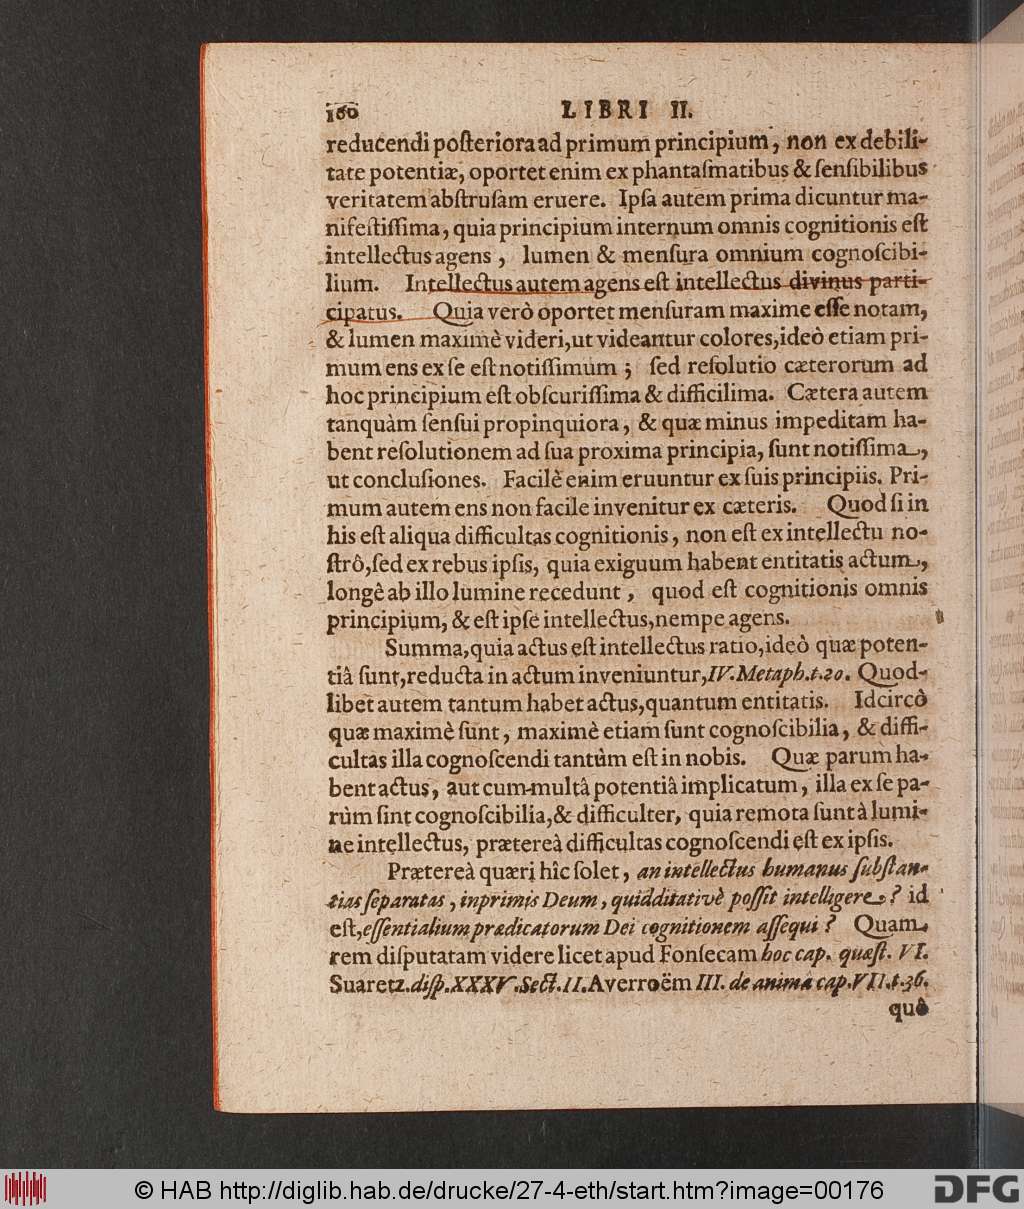 160 LIBRI II.
reducendi poſteriora ad primum principium, non ex debili-
tate potentiæ, oportet enim ex phantaſmatibus & ſenſibilibus
veritatem abſtruſam eruere. Ipſa autem prima dicuntur ma-
nifeſtiſſima, quia principium internum omnis cognitionis eſt
intellectus agens, lumen & menſura omnium cognoſcibi-
lium. Intellectus autem agens eſt intellectus divinus parti-
cipatus. Quia verò oportet menſuram maxime eſſe notam,
& lumen maximè videri, ut videantur colores, ideò etiam pri-
mum ens ex ſe eſt notiſſimum; ſed reſolutio cæterorum ad
hoc principium eſt obſcuriſſima & difficilima. Cætera autem
tanquàm ſenſui propinquiora, & quæ minus impeditam ha-
bent reſolutionem ad ſua proxima principia, ſunt notiſſima,
ut concluſiones. Facilè enim eruuntur ex ſuis principiis. Pri-
mum autem ens non facile invenitur ex cæteris. Quod ſi in
his eſt aliqua difficultas cognitionis, non eſt ex intellectu no-
ſtrô, ſed ex rebus ipſis, quia exiguum habent entitatis actum,
longê ab illo lumine recedunt, quod eſt cognitionis omnis
principium, & eſt ipſe intellectus, nempe agens.
Summa, quia actus eſt intellectus ratio, ideò quæ poten-
tiâ ſunt, reducta in actum inveniuntur, IV. Metaph. t. 20. Quod-
libet autem tantum habet actus, quantum entitatis. Idcircò
quæ maximè ſunt, maximè etiam ſunt cognoſcibilia, & diffi-
cultas illa cognoſcendi tantùm eſt in nobis. Quæ parum ha-
bent actus, aut cum multâ potentiâ implicatum, illa ex ſe pa-
rùm ſint cognoſcibilia, & difficulter, quia remota ſunt à lumi-
ne intellectus, prætereà difficultas cognoſcendi eſt ex ipſis.
Prætereà quæri hîc ſolet, an intellectus humanus ſubſtan-
tias ſeparatas, inprimis Deum, quidditativè poſſit intelligere? id
eſt, eſſentialium prædicatorum Dei cognitionem aſſequi? Quam
rem diſputatam videre licet apud Fonſecam hoc cap. quæſt. VI.
Suaretz. diſp. XXXV. Sect. II. Averroëm III. de anima cap. VII. t. 36.
quô
© HAB http://diglib.hab.de/drucke/27-4-eth/start.htm?image=00176
DFG